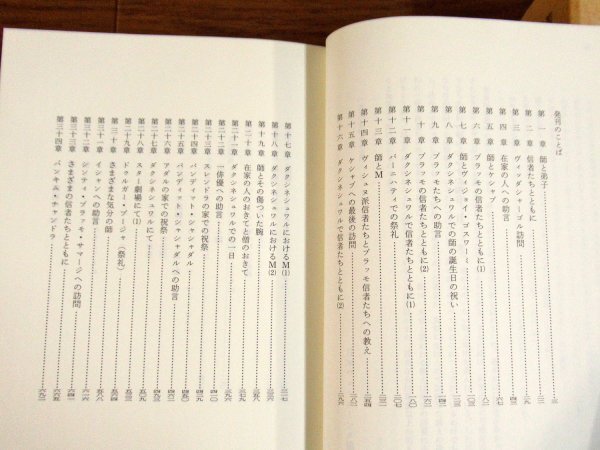 発刊のことば
第一章 師と弟子
第二章 信者たちとともに
第三章 ヴィッダシャーゴル訪問
第四章 在家の人への助言
第五章 師とケシャブ
第六章 ブラッモ信者たちとともに(1)
第七章 師とヴィジョイ・ゴスワーミ
第八章 ダクシネシュワルでの師の誕生日の祝い
第九章 ブラッモたちへの助言
第十章 ブラッモの信者たちとともに(2)
第十一章 ダクシネシュワルで信者たちとともに(1)
第十二章 パーニハティでの祭礼
第十三章 師とM
第十四章 ヴィシュヌ派信者たちとブラッモ信者たちへの教え
第十五章 ケシャブへの最後の訪問
第十六章 ダクシネシュワルで信者たちとともに(2)
第十七章 ダクシネシュワルにおけるM(1) 三一七
第十八章 ダクシネシュワルにおけるM(2) 三三六
第十九章 師とその傷ついた腕 三五八
第二十章 在家の人のおきてと僧のおきて 三七九
第二十一章 ダクシネシュワルでの一日 三九六
第二十二章 一俳優への助言 四一〇
第二十三章 スレンドラの家での祝祭
第二十四章 パンディット・シャシャダル
第二十五章 パンディット・シャシャダルへの助言
第二十六章 アダルの家での祝祭
第二十七章 ダクシネシュワルにて
第二十八章 スター劇場にて(1)
第二十九章 ドゥルガー・プージャ(祭礼)
第三十章 さまざまな気分の師
第三十一章 イシャンへの助言
第三十二章 シンティ・ブラッモ・サマージへの訪問
第三十三章 さまざまの信者たちとともに
第三十四章 バンキム・チャンドラ